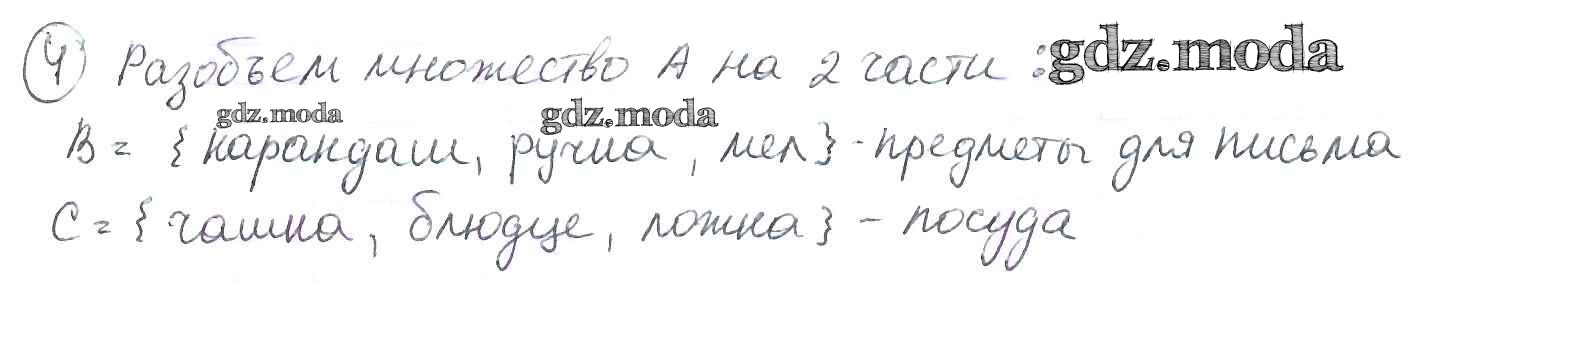 4 Разобъем множество А на 2 части : gdz.moda
gdz.moda gdz.moda
В = {карандаш, ручка, мел} - предметы для письма
С = {чашка, блюдце, ложка} - посуда